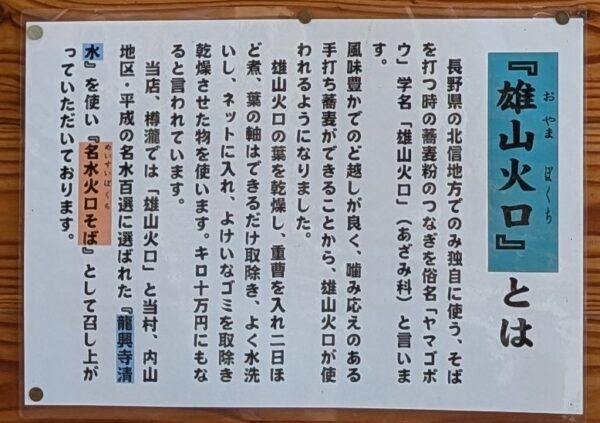 『雄山火口』とは
おやま ぼくち
長野県の北信地方でのみ独自に使う、そば
を打つ時の蕎麦粉のつなぎを俗名「ヤマゴボ
ウ」学名「雄山火口」（あざみ科）と言いま
す。
風味豊かでのど越しが良く、噛み応えのある
手打ち蕎麦ができることから、雄山火口が使
われるようになりました。
雄山火口の葉を乾燥し、重曹を入れ二日ほ
ど煮、葉の軸はできるだけ取除き、よく水洗
いし、ネットに入れ、よけいなゴミを取除き
乾燥させた物を使います。キロ十万円にもな
ると言われています。
当店、樽滝では「雄山火口」と当村、内山
地区・平成の名水百選に選ばれた『龍興寺清
水』を使い『名水火口そば』として召し上が
めいすいぼくち
っていただいております。